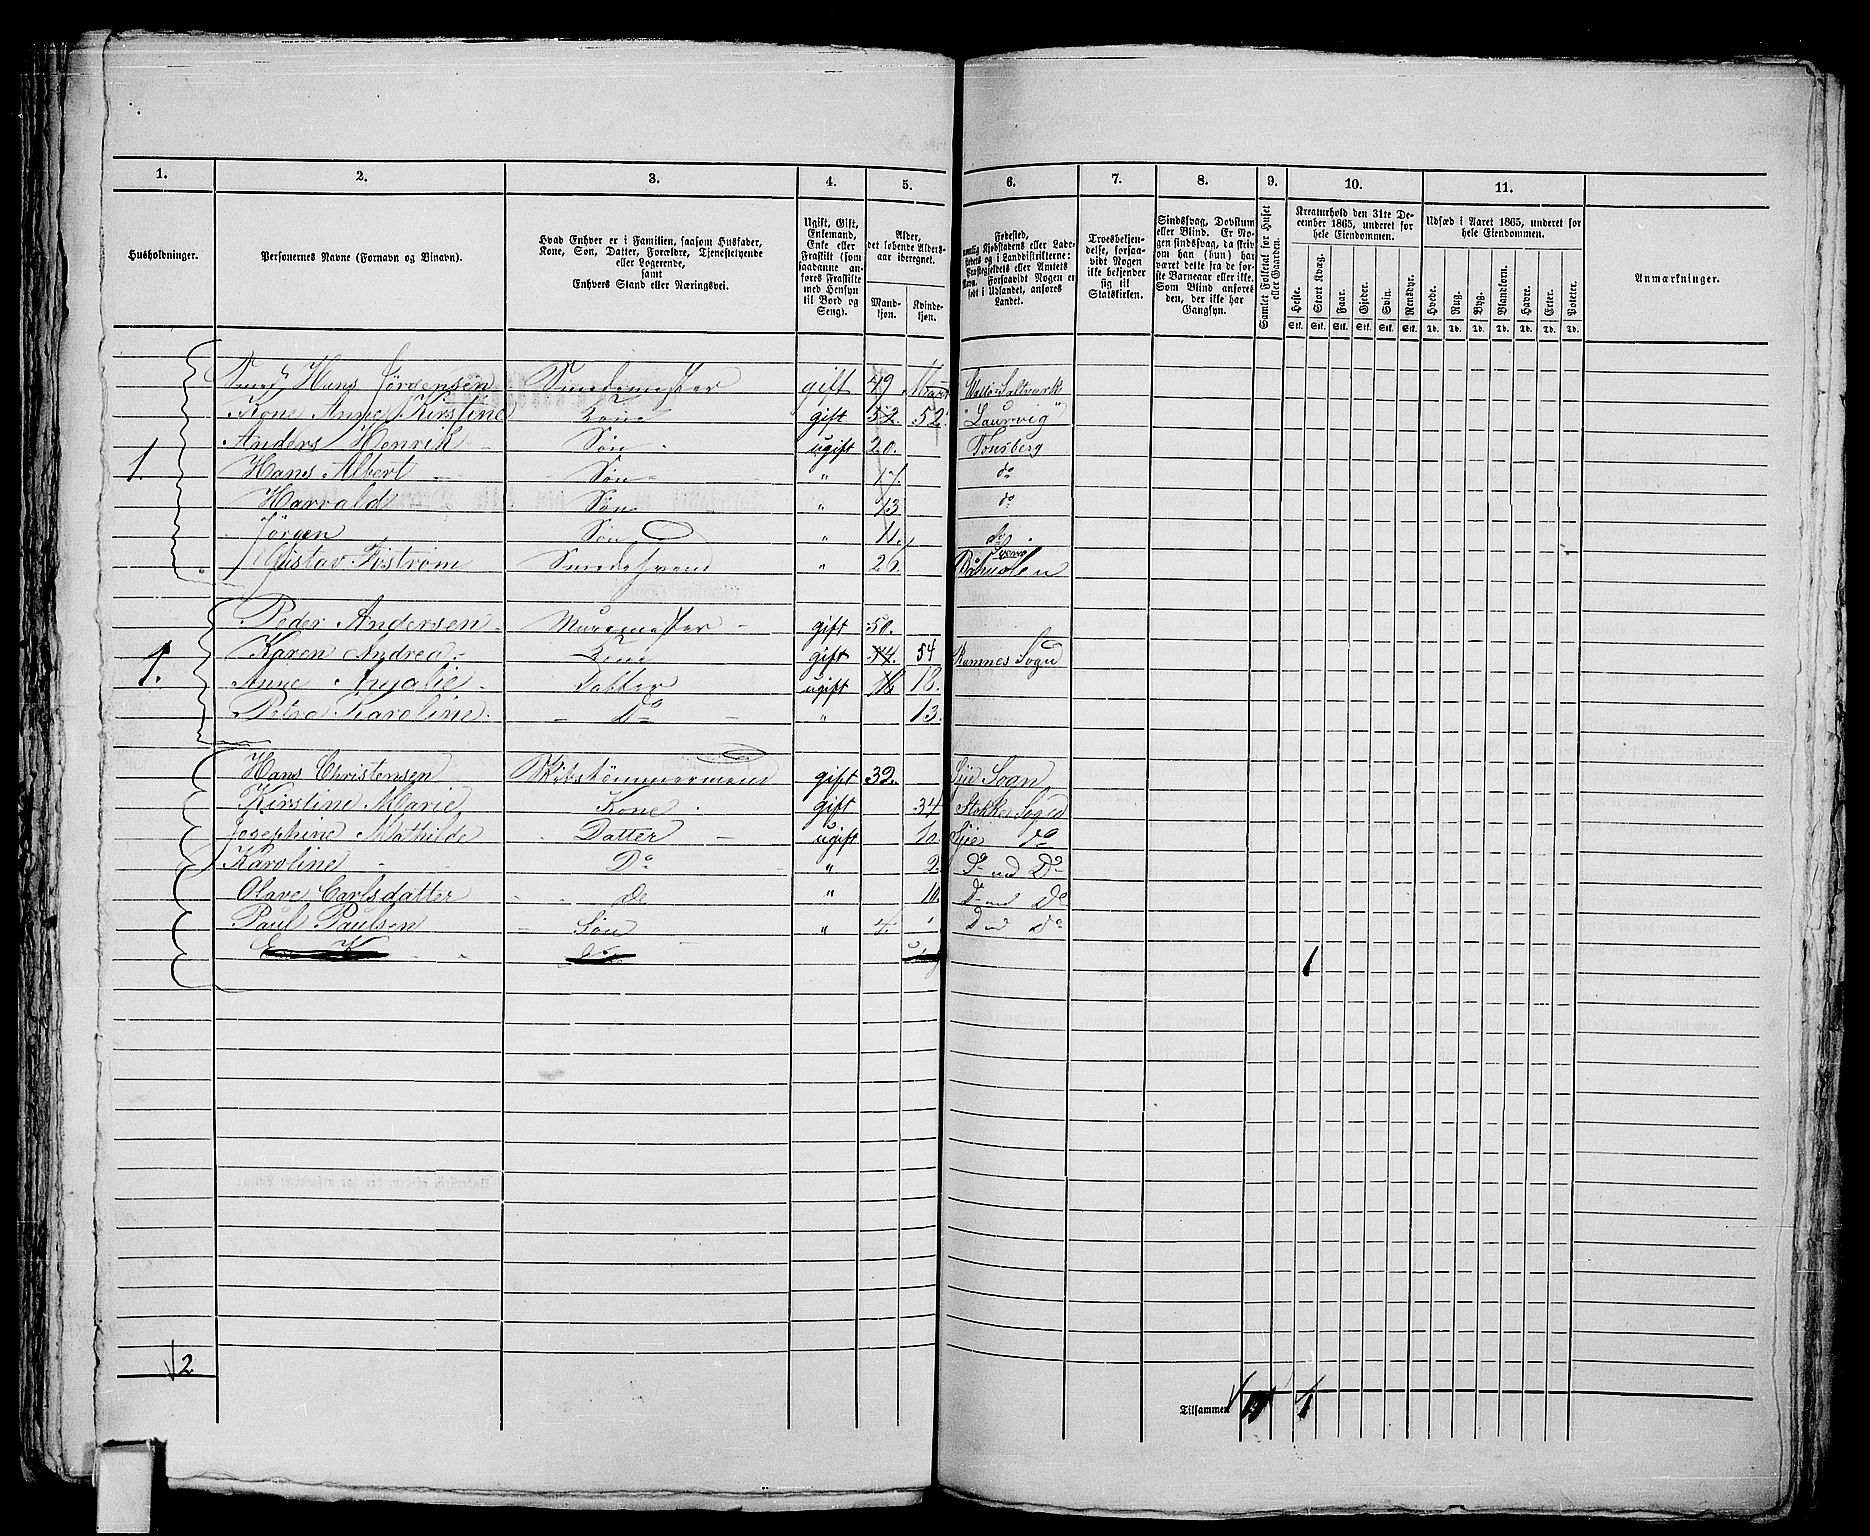 1. 2. 3. 4. 5. 6. 7. 8. 9. 10. 11.
Husholdninger.
Personernes Navne (Fornavn og Binavn).
Hvad Enhver er i Familien, saasom Husfader,
Kone, Søn, Datter, Forældre, Tjenestetyende
eller Logerende,
samt
Enhvers Stand eller Næringsvei.
Ugift, Gift,
Enkemand,
Enke eller
Fraskilt (som
saadanne an-
føres Fraskilte
med Hensyn
til Bord og
Seng).
Alder,
det løbende Alders-
aar iberegnet.
Mand-
kjøn.
Kvinde-
kjøn.
Fødested,
nemlig Kjøbstadens eller Lade-
stedets og i Landdistrikterne:
Præstegjeldets eller Amtets
Navn. Forsaavidt Nogen er
født i Udlandet, anføres
Landet.
Troesbekjen-
delse, forsaa-
vidt Nogen
ikke bekjender
sig til
Statskirken.
Sindssvag, Døvstum
eller Blind. Er No-
gen sindssvag, da skriv
om han (hun) har
været dette fra de før-
ste Barneaar eller ikke.
Som Blind anføres
den, der ikke har
Gangsyn.
Samlet Folketal for Huset
eller Gaarden.
Kreaturhold den 31te De-
cember 1865, underet for
hele Eiendommen.
Heste. Stort Kvæg. Faar. Gjeder. Svin. Rensdyr.
Stk. Stk. Stk. Stk. Stk. Stk.
Udsæd i Aaret 1865, underet for
hele Eiendommen.
Hvede. Rug. Byg. Blandkorn. Havre. Erter. Poteter.
Td. Td. Td. Td. Td. Td. Td.
Anmærkninger.
Smed Hans Jörgensen Smedemester gift 49
Kone Anne Kirstine Kone gift 52. 52. Laurvig
Anders Henrik Søn ugift 20. Tønsberg
1. Hans Albert Søn " 17. do
Harvald Søn " 13 do
Jörgen Søn " 11. do
Gustav Fistrøm Smedesvend " 26 Båhuslen
Peder Andersen Muremester gift 50.
Karen Andrea Kone gift 54. 54 Ramnes Sogn
1. Anne Amalie Datter ugift 18 18.
Petra Karoline. Do " 13.
Hans Christensen Skibstømmermand gift 32. Sem Sogn
Kirstine Marie Kone gift 34 Stokke Sogn
Josephine Mathilde Datter ugift 10. Do
Karoline Do " 2. Do Do
Olave Carlsdatter Do " 10. Do Do
Paul Paulsen Søn " 4. Do
1
2
Tilsammen 1